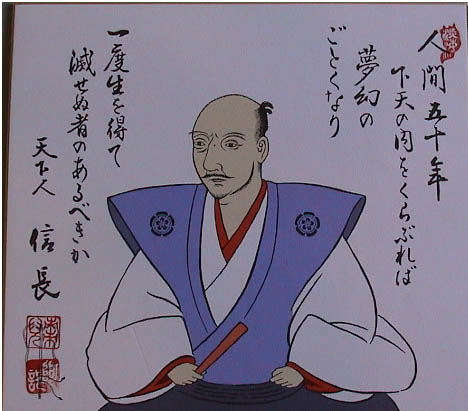 人間五十年
下天の内をくらぶれば
夢幻の
ごとくなり
一度生を得て
滅せぬ者のあるべきか
天下人 信長